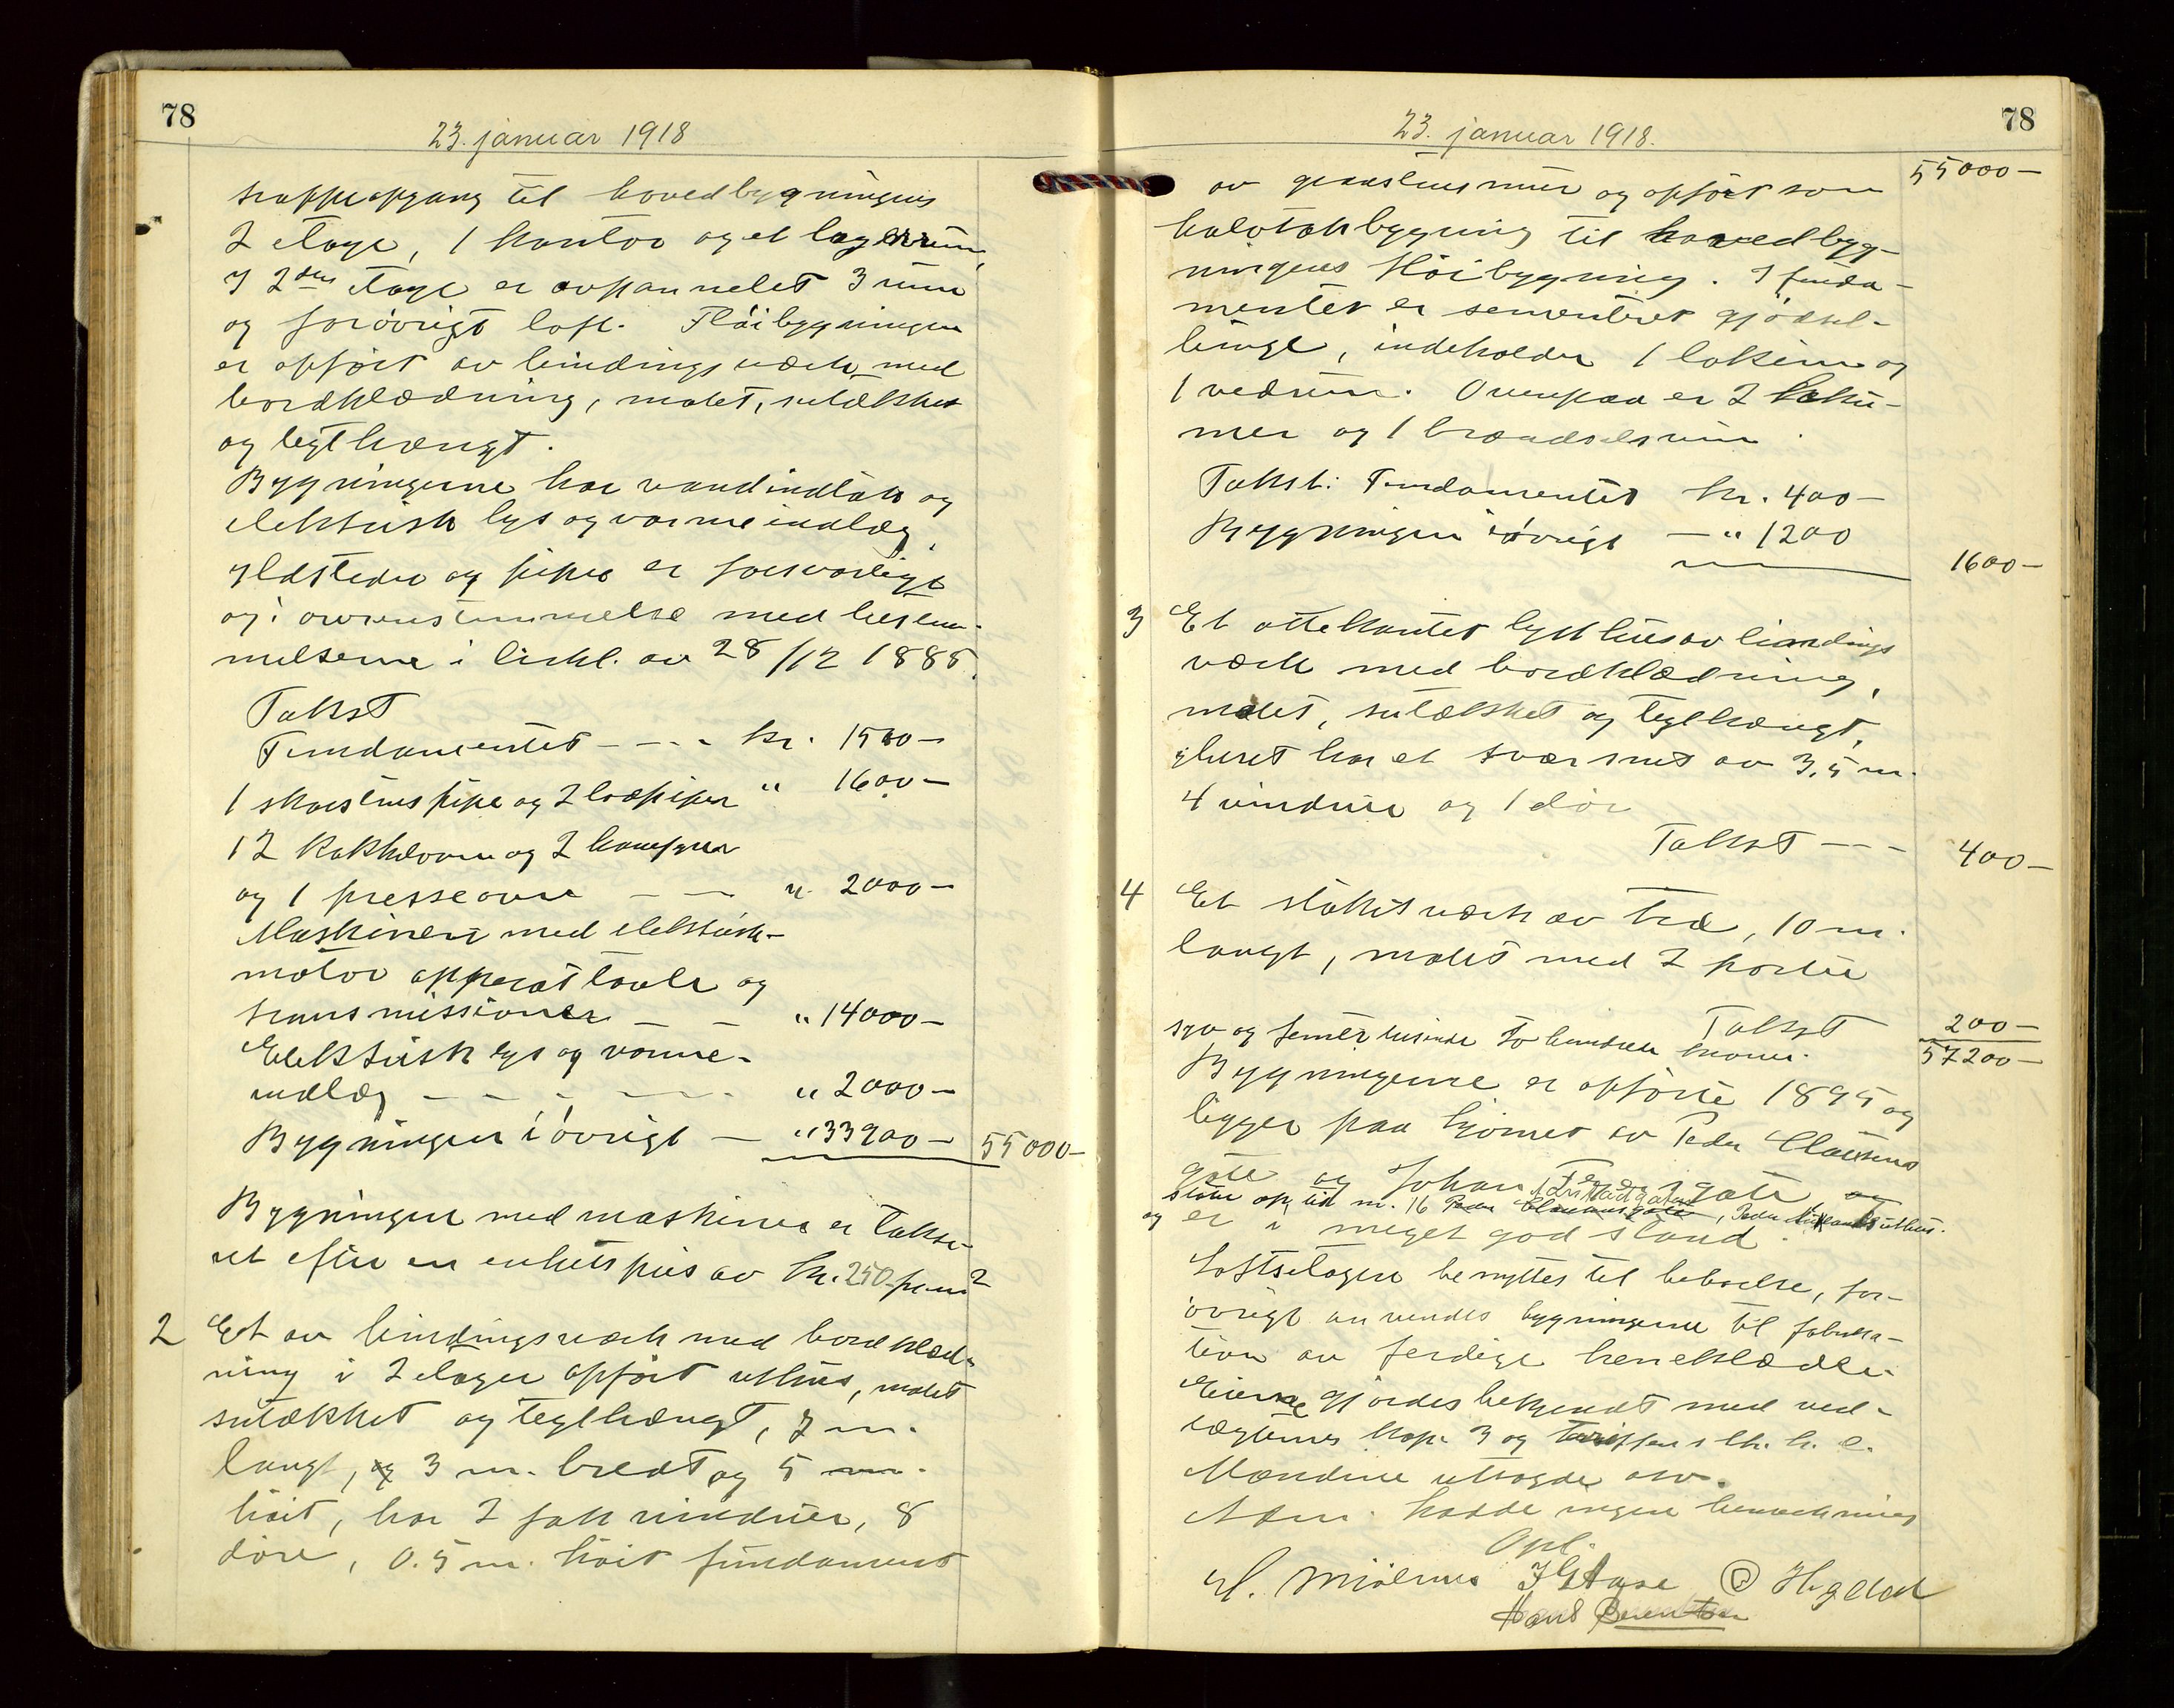 78
23. januar 1918
trappeopgang til hovedbygningens
2 etage, 1 kontor og et lagerrum,
I 2den etage er avpannelet 3 rum
og forøvrigt loft. Fløibygningen
er opført av bindingsverk med
bordklædning, malet, sutækket
og teglhængt.
Bygningerne har vandindtak og
elektrisk lys og varmeindlæg,
ildsteder og piper er forsvarlige
og i overensstemmelse med bestem-
melserne i cirkl. av 28/12 1885.
Takst
Fundamentet - - - kr. 1500 -
1 skorstenspipe og 2 løspiper " 1600 -
12 kakkelovne og 2 komfyrer
og 1 presseovn - - " 2000 -
Maskineri med elektrisk-
motor apparattavle og
transmissioner - - " 14000 -
Elektrisk lys og varme-
indlæg - - - - " 2000 -
Bygningen iøvrigt - " 33900 - 55000 -
Bygningen med maskiner er takse-
ret efter en enhetspris av kr. 250 - pr. m2
2 Et av bindingsverk med bordklæd-
ning i 2 etager opført uthus, malet
sutækket og teglhængt, 7 m.
langt, og 3 m. bredt og 5 m.
høit, har 2 fak vinduer, 8
døre, 0.5 m. høit fundament
78
23. januar 1918.
55000 -
av graastensmur og opført som
halvtakbygning til hovedbyg-
ningens fløibygning. I funda-
mentet er sementeret gjødsel-
binge, indeholder 1 lokum og
1 vedrum. Ovenpaa er 2 loku-
mer og 1 brændselsrum.
Takst: Fundamentet kr. 400 -
Bygningen iøvrigt - " 1200
1600 -
3 Et ottekantet lysthus av bindings
verk med bordklædning,
malet, sutækket og teglhængt,
huset har et tversnit av 3,5 m.
4 vinduer og 1 dør
Takst - - - 400 -
4 Et stakitverk av træ, 10 m.
langt, malet med 2 porter
Takst 200 -
syv og femti tusinde to hundrede kroner. 57200 -
Bygningerne er opførte 1895 og
ligger paa hjørnet av Peder Clausens
gate og Johan gate og
støter op til nr. 16 Peder Clausensgate, Peder uthus.
og er i meget god stand.
Loftsetagen benyttes til beboelse, for-
øvrigt anvendes bygningerne til fabrika-
tion av ferdige herreklæder.
Eierne gjordes bekjendt med ved-
tægternes kap. 3 og tariffens lit. h. e.
Mændene utsagde osv.
Adm. hadde ingen bemerkning
Opl.
Hans Berentsen